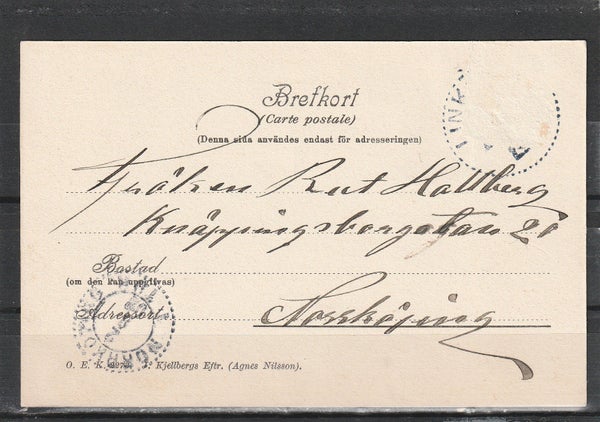 Brefkort
(Carte postale)
(Denna sida användes endast för adresseringen)
LINK
Fröken Rut Hallberg
Knäppingsborgatan 20
Bostad
(om den kan uppgifvas)
Adressort
Norrköping
NORRKÖPING
O. E. K. Kjellbergs Eftr. (Agnes Nilsson).